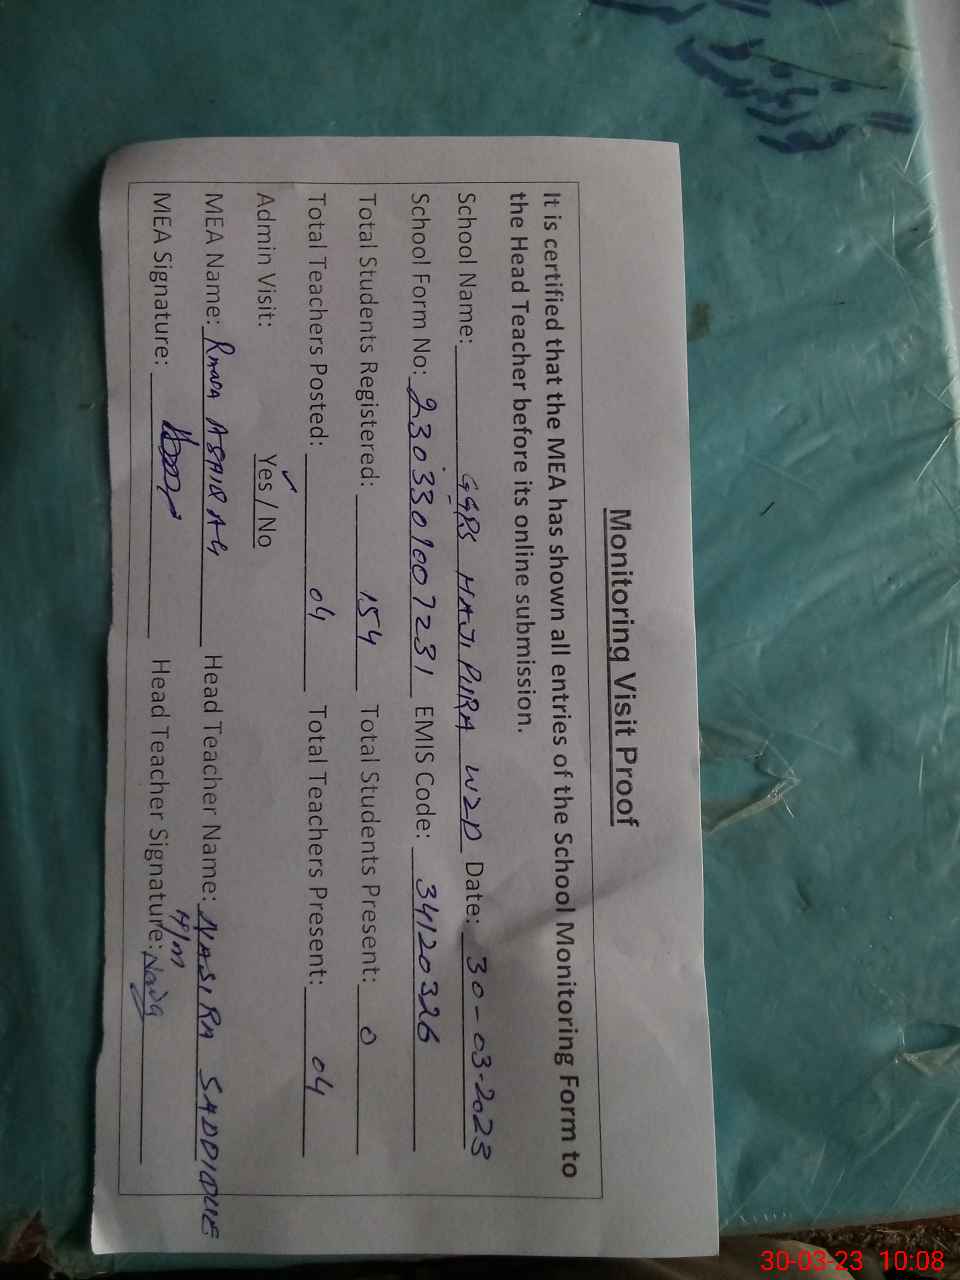 Monitoring Visit Proof
It is certified that the MEA has shown all entries of the School Monitoring Form to
the Head Teacher before its online submission.
School Name: GGPS HAJI PURA WZD Date: 30-03-2023
School Form No: 2303301007231 EMIS Code: 34120326
Total Students Registered: 154 Total Students Present: 0
Total Teachers Posted: 04 Total Teachers Present: 04
Admin Visit: Yes / No
MEA Name: Head Teacher Name: NASIRA SADDIQUE
H/M
MEA Signature: Head Teacher Signature:
30-03-23 10:08